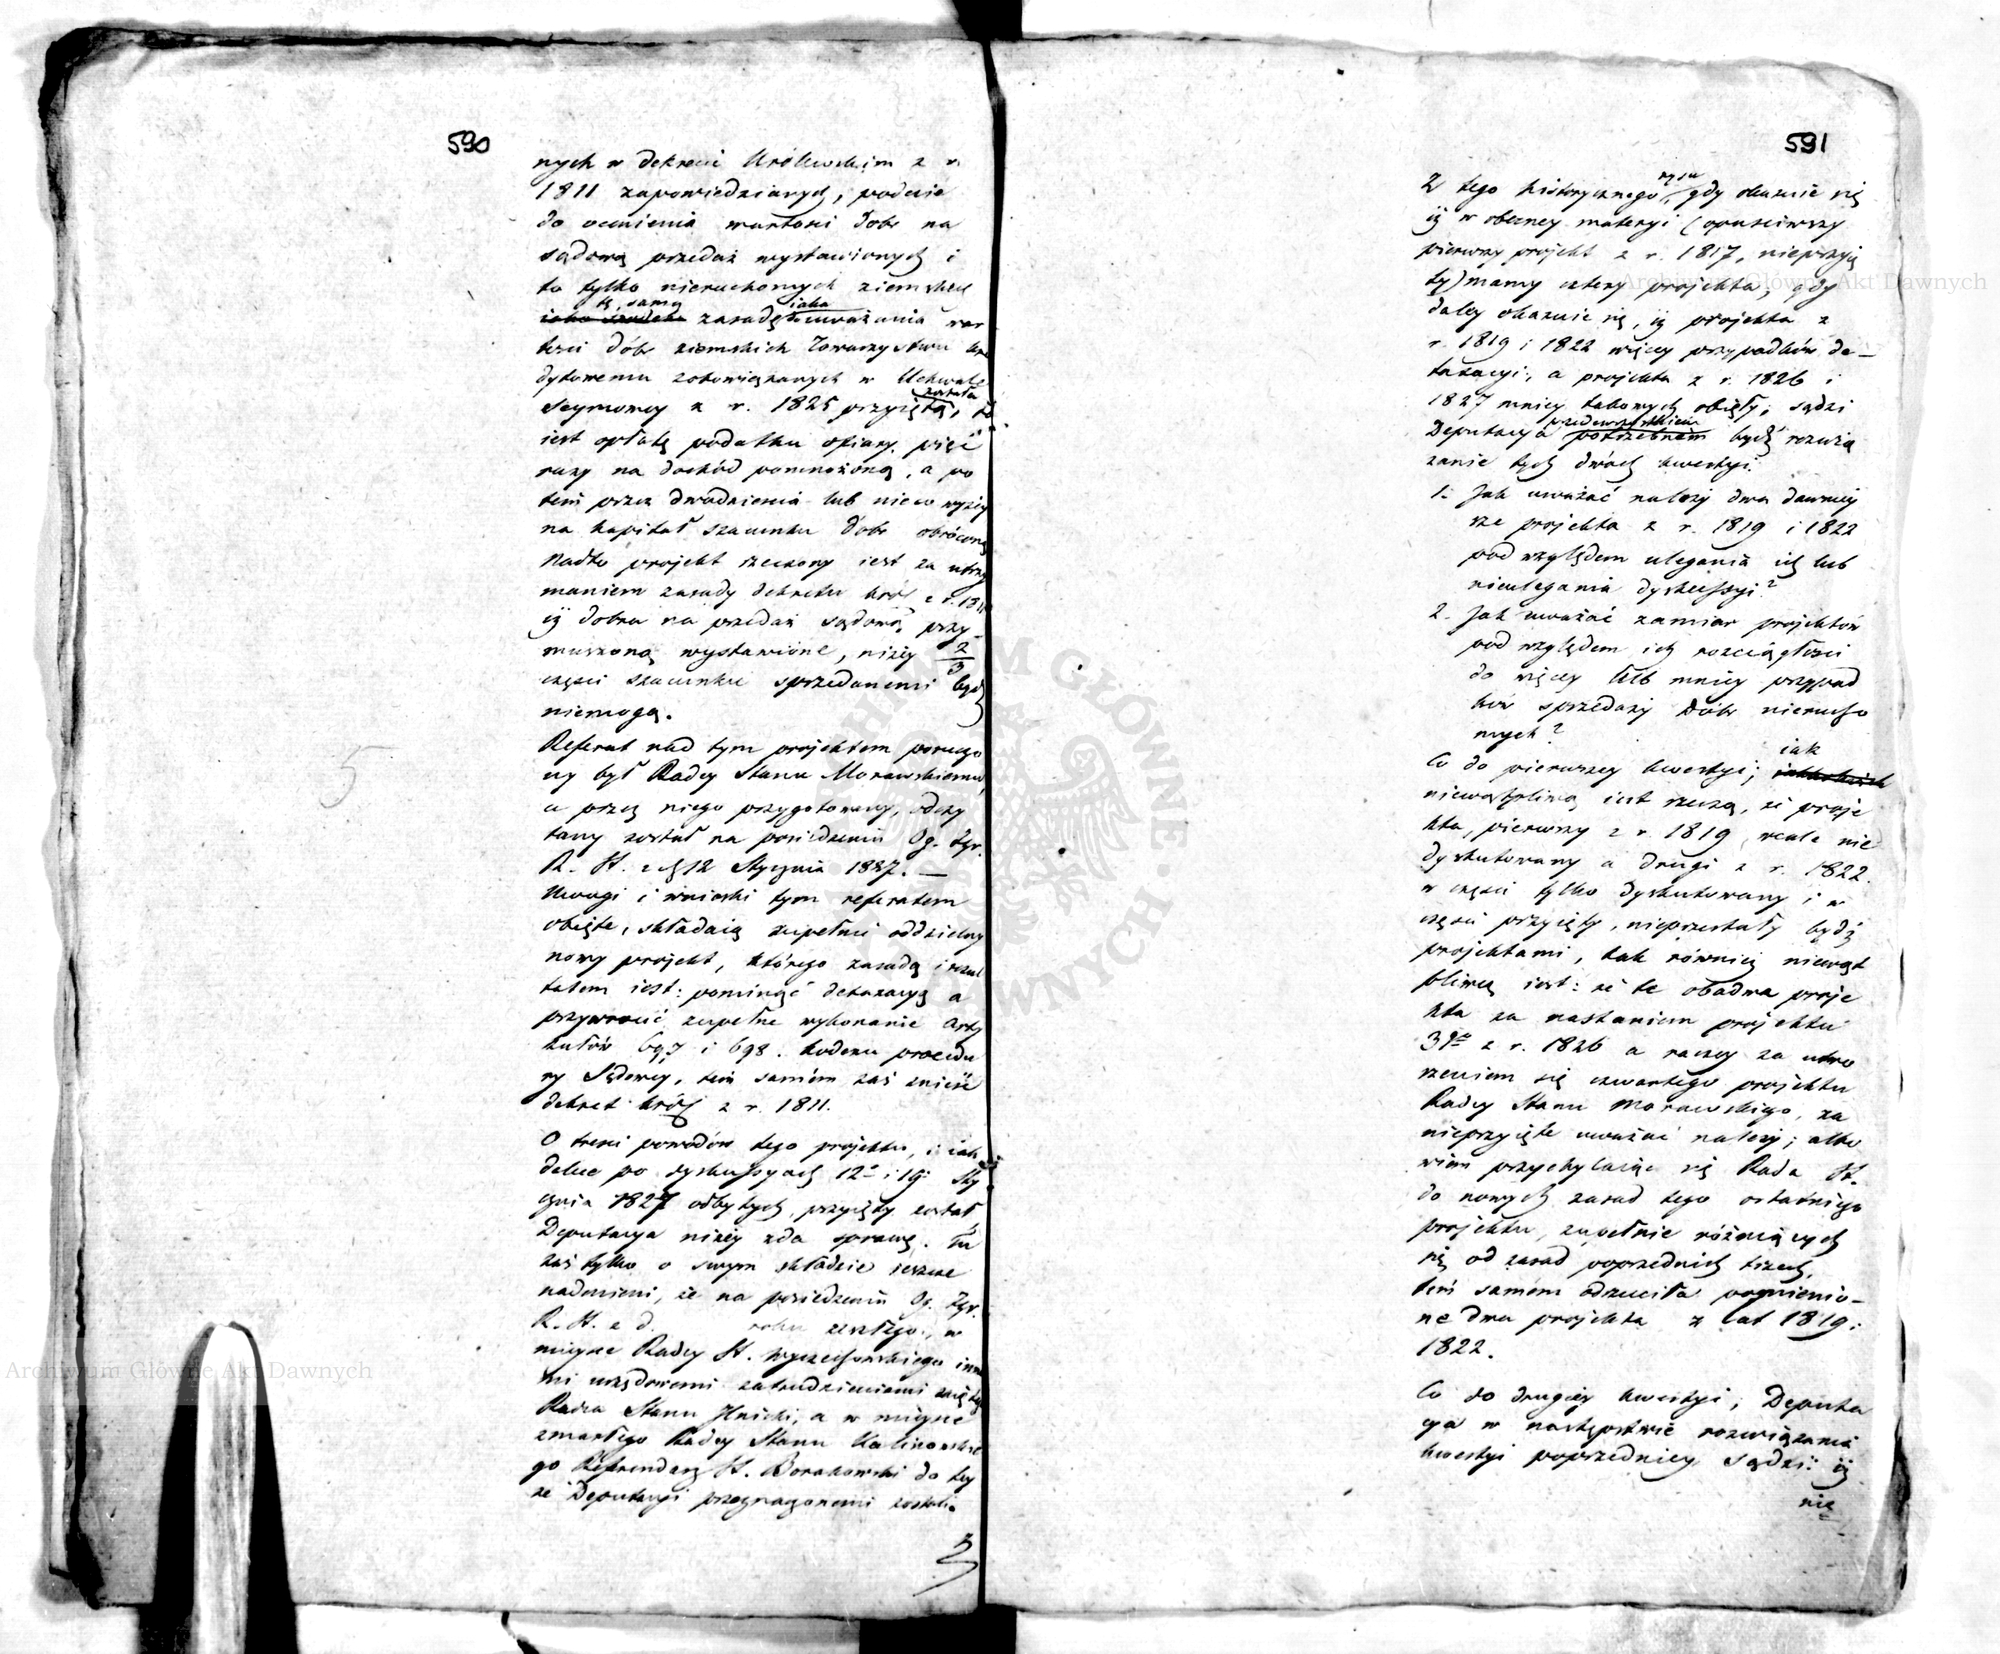 590
nych w dekrecie Królewskim z r.
1811 zapowiedzianych, podaie
do ocenienia wartości dóbr na
sądową przedaż wystawionych i
to tylko nieruchomych ziemskich
tę samą iaka
zasadę uważania war
tości dóbr ziemskich Towarzystwu kre
dytowemu zobowiązanych w Uchwale
została
Seymowey z r. 1825 przyięta, to
iest opłatę podatku ofiary pięć
razy na dochód pomnożoną, a po
tem przez dwadzieścia lub nieco wyżéy
na kapitał szacunku dóbr obróconą
Nadto projekt rzeczony iest za utrzy
maniem zasady dekretu król z r. 1811
iż dobra na przedaż sądową przy-
muszoną wystawione, niżey 2/3
części szacunku sprzedanemi bydź
niemogą.
Referat nad tym projektem poruczo
ny był Radcy Stanu Morawskiemu,
a przez niego przygotowany, odczy
tany został na posiedzeniu Og. Zgr.
R. St. z d. 12 Stycznia 1827. —
Uwagi i wnioski tym referatem
obięte, składaią zupełnie oddzielny
nowy projekt, którego zasadą i rezul
tatem iest: pominąć detaxacyą a
przywrócić zupełne wykonanie Arty
kułów 697 i 698. kodexu procedu
ry Sądowey, tem samém zaś znieść
dekret król z r. 1811.
O treści powodów tego projektu, i iak
daléce po dyskussyach 12º i 19º Sty
cznia 1827 odbytych, przyięty został
Deputacya niżey zda sprawę. Tu
zaś tylko o swym składzie ieszcze
nadmieni, że na posiedzeniu Og. Zgr.
R. St. z d. roku zeszłego, w
mieysce Radcy St. Wyczechowskiego inne
mi urzędowemi zatrudnieniami zaiętego
Radca Stanu Hnicki, a w mieysce
zmarłego Radcy Stanu Kalinowskie
go Referendarz St. Borakowski do tey
że Deputacyi przeznaczonemi zostali.
Z
591
rysu
Z tego historycznego, gdy okazuie się
iż w obecney materyi (opuściwszy
pierwszy projekt z r. 1817, nieprzyię
ty) mamy cztery projekta, gdy
daley okazuie się, iż projekta z
r. 1819 i 1822 więcey przypadków de-
taxacyi, a projekta z r. 1826 i
1827 mniey takowych obięły; sądzi
przedewszystkiém
Deputacya potrzebnem bydź rozwią
zanie tych dwóch kwestyi.
1. Jak uważać należy dwa dawniey
sze projekta z r. 1819 i 1822
pod względem ulegania ich lub
nieulegania dyskussyi?
2. Jak uważać zamiar projektów
pod względem ich rozciągłości
do więcey lub mniey przypad
ków sprzedaży dóbr nierucho
mych?
iak
Co do pierwszey kwestyi;
niewątpliwą iest rzeczą, że proje
kta, pierwszy z r. 1819, wcale nie
dyskutowany a drugi z r. 1822.
w części tylko dyskutowany i w
części przyięty, nieprzestały bydź
projektami, tak równiéż niewąt
pliwą iest: że te obadwa proje
kta za nastaniem projektu
3go z r. 1826 a raczey za utwo
rzeniem się czwartego projektu
Radcy Stanu Morawskiego, za
nieprzyięte uważać należy; albo
wiem przychylaiąc się Rada St.
do nowych zasad tego ostatniego
projektu, zupełnie różniących
się od zasad poprzednich trzech,
tém samém odrzuciła pomienio-
ne dwa projekta z lat 1819 i
1822.
Co do drugiéy kwestyi; Deputa
cya w następstwie rozwiązania
kwestyi poprzedniey sądzi: iż
nie
Archiwum Główne Akt Dawnych
Archiwum Główne Akt Dawnych